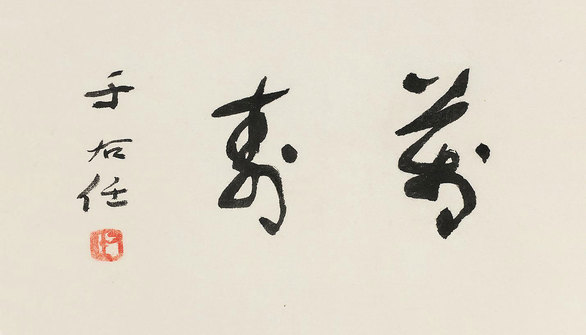 萬壽
于右任